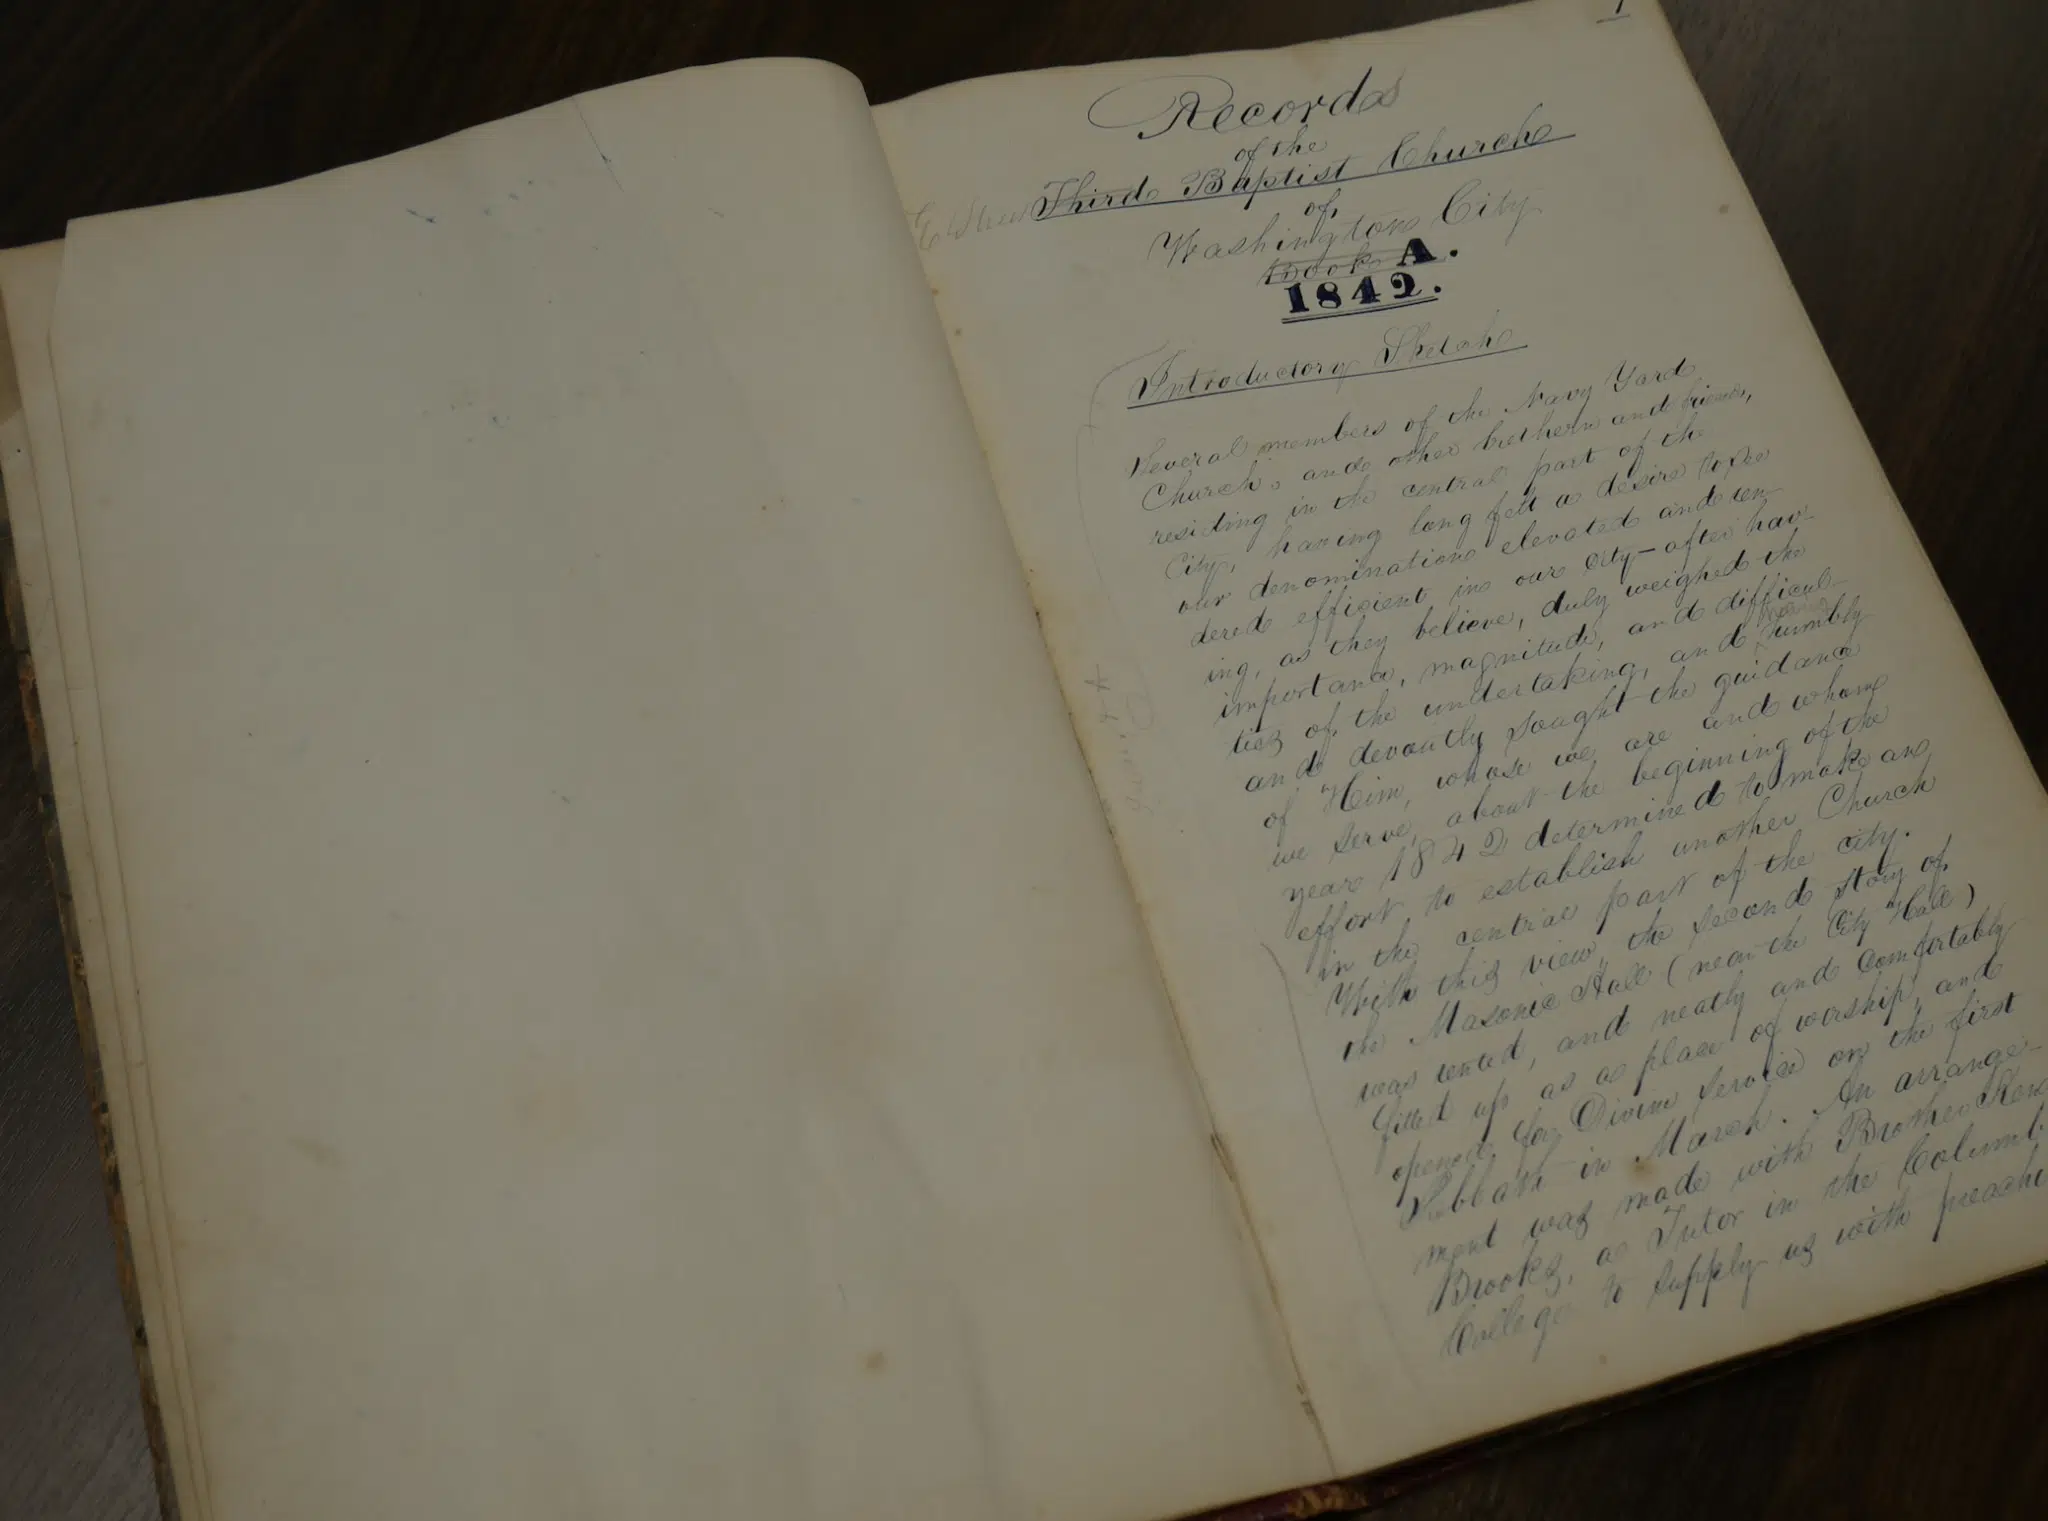 1
Records
of the
E Street Third Baptist Church
of
Washington City
Book A.
1842.
Introductory Sketch
Several members of the Navy Yard
Church, and other brethern and friends,
residing in the central part of the
City, having long felt a desire to see
our denomination elevated and ren-
dered efficient in our city—after hav-
ing, as they believe, duly weighed the
importance, magnitude, and difficul-
ties of the undertaking, and humbly
and devoutly sought the guidance
of Him, whose we are and whom
we serve, about the beginning of the
year 1842 determined to make an
effort to establish another Church
in the central part of the city.
With this view, the second story of
the Masonic Hall (near the City Hall)
was rented, and neatly and comfortably
fitted up as a place of worship, and
opened for Divine service on the first
Sabbath in March. An arrange-
ment was made with Brother Ken
Brooks, a Tutor in the Columb
College to supply us with preachi